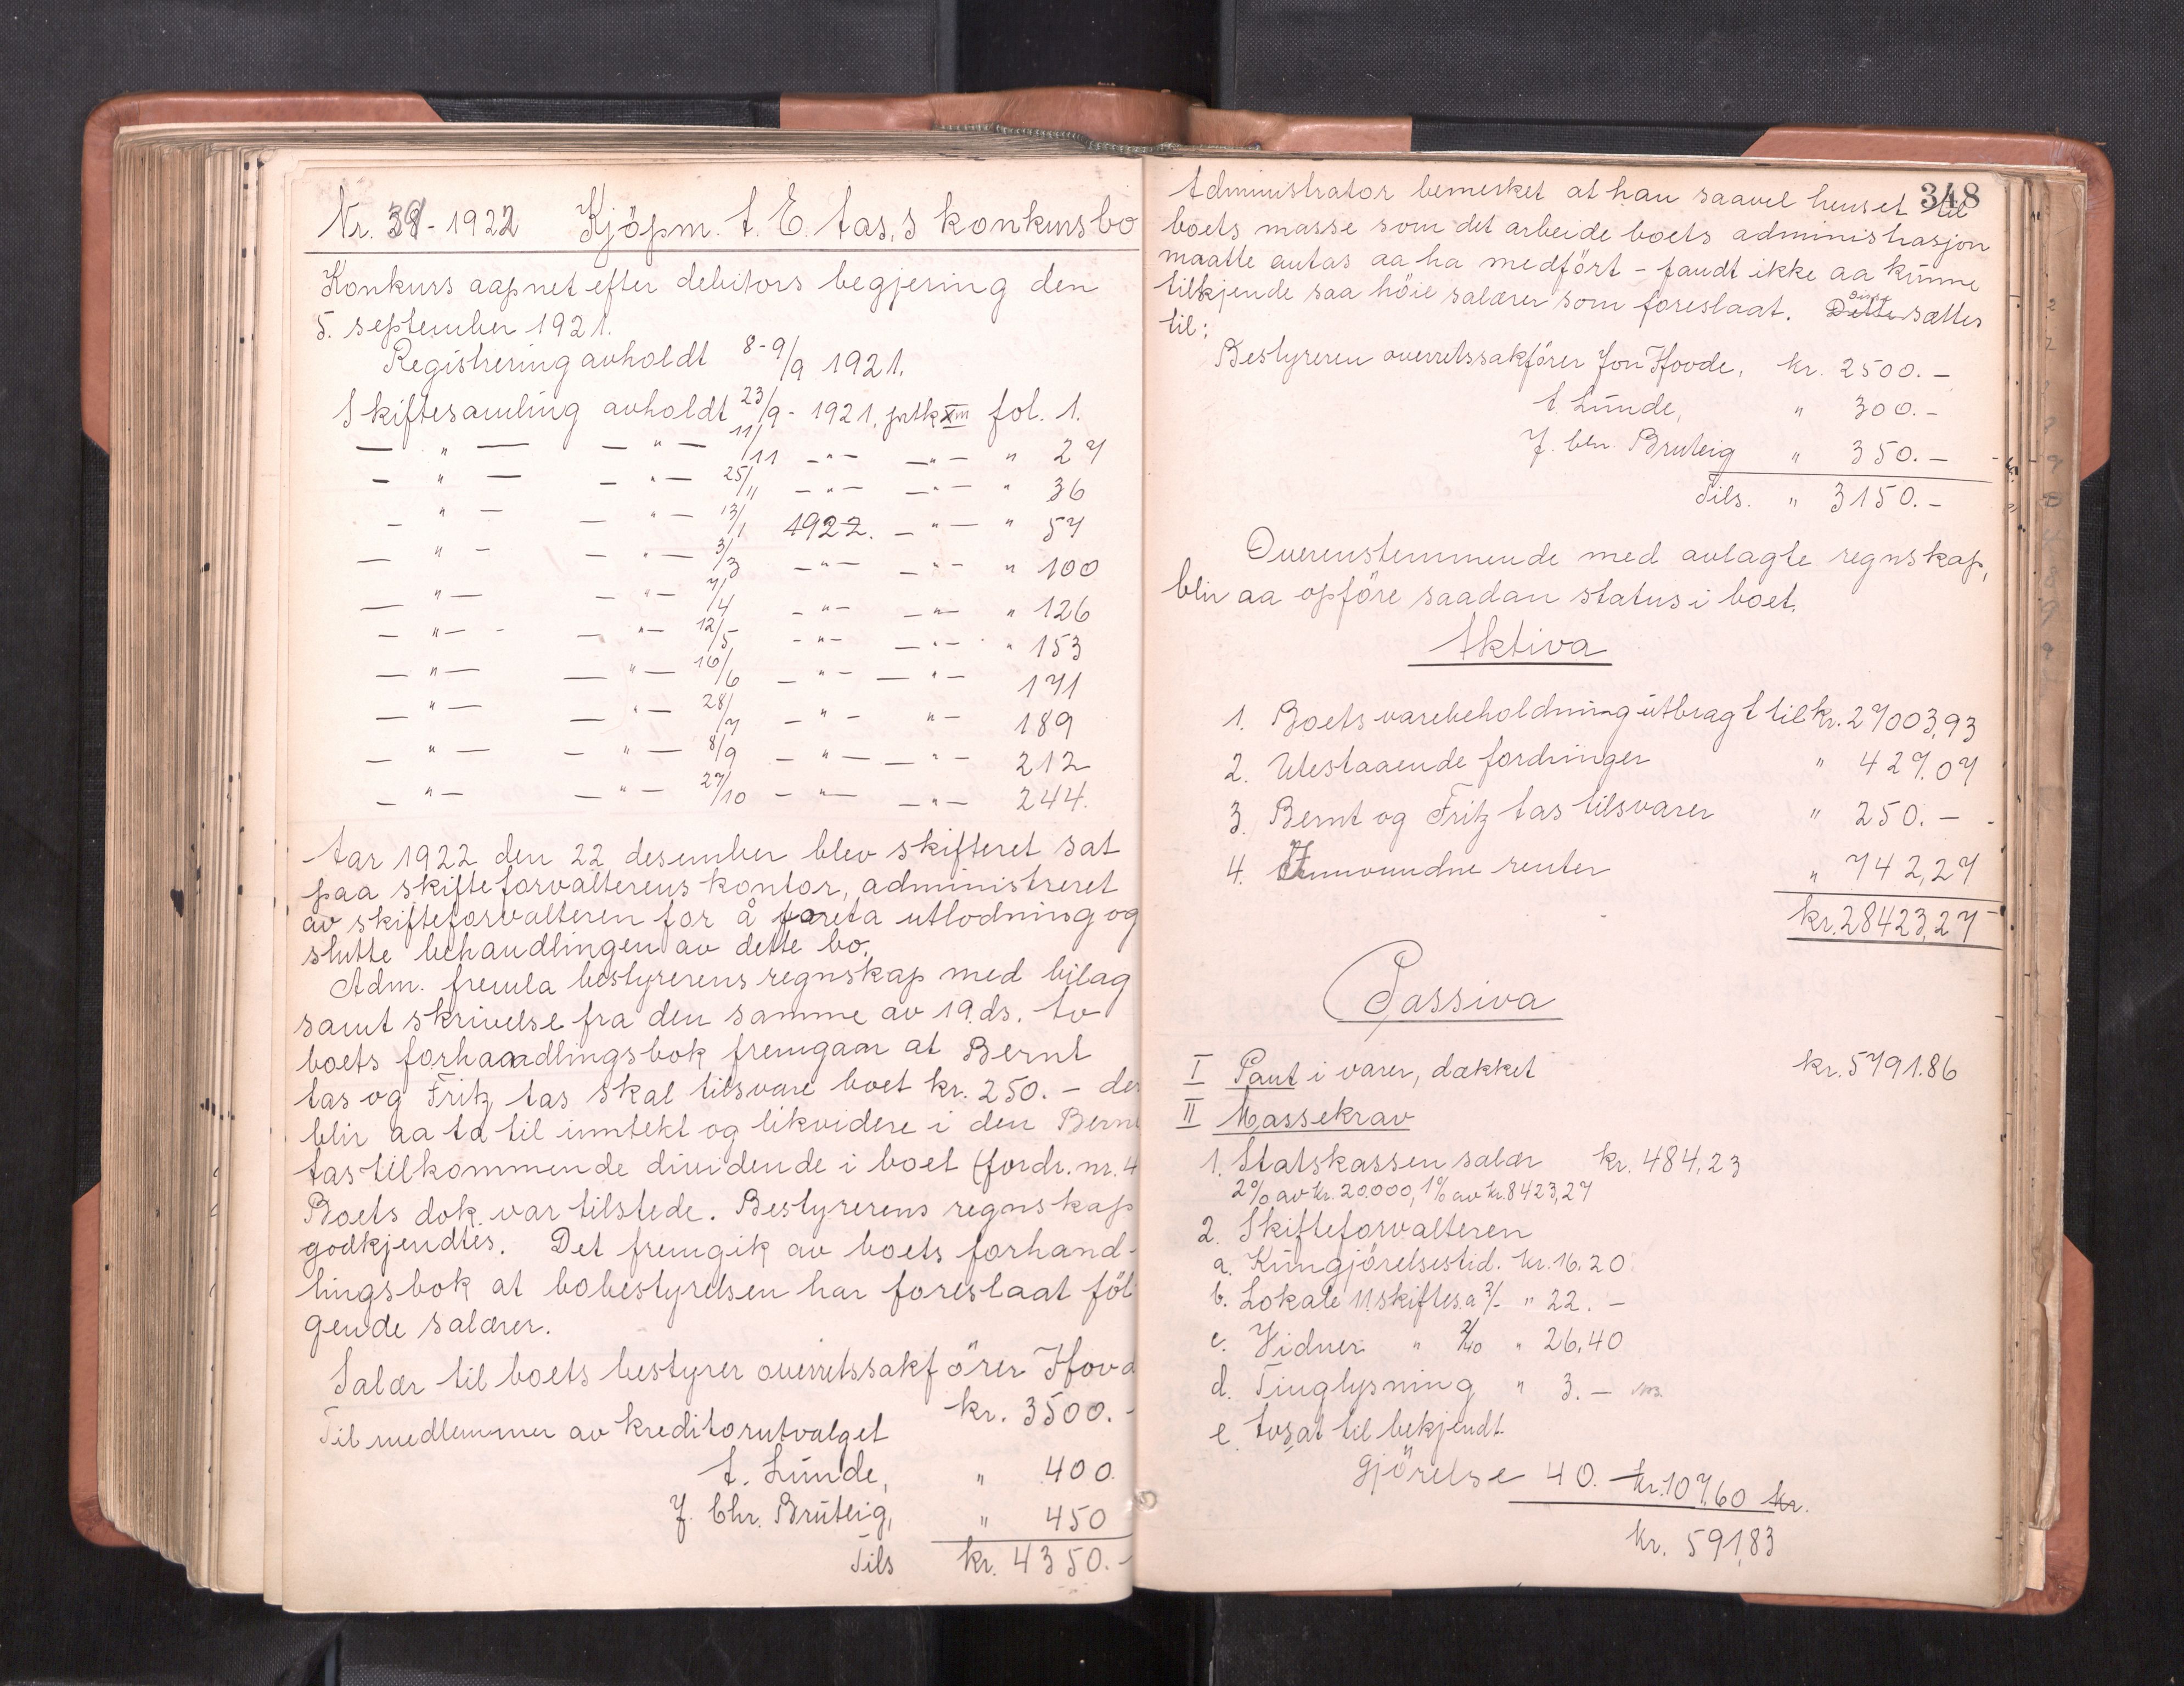 Nr. 38 - 1922 Kjöpm. A. E. Aas,s konkursbo
Konkurs aapnet efter debitors begjering den
5. september 1921.
Registrering avholdt 8-9/9 1921.
Skiftesamling avholdt 23/9 - 1921. prtk XIII fol. 1.
— " — — " — 11/11 - " - — " — " 27
— " — — " — 25/11 - " - — " — " 36
— " — — " — 13/1 1922. — " — " 57
— " — — " — 3/3 - " - — " — " 100
— " — — " — 7/4 - " - — " — " 126
— " — — " — 12/5 - " - — " — " 153
— " — — " — 16/6 — " — — " — 171
— " — — " — 28/7 — " — " — 189
— " — — " — 8/9 — " — — " — 212
— " — — " — 27/10 — " — — " — 244.
Aar 1922 den 22 desember blev skifteret sat
paa skifteforvalterens kontor, administreret
av skifteforvalteren for å foreta utlodning og
slutte behandlingen av dette bo.
Adm. fremla bestyrerens regnskap med bilag
samt skrivelse fra den samme av 19. ds. Av
boets forhaandlingsbok fremgaar at Bernt
Aas og Fritz Aas skal tilsvare boet kr. 250. - der
blir aa ta til inntekt og likvidere i den Bernt
Aas tilkommende dividende i boet (fordr. nr. 4
Boets dok. var tilstede. Bestyrerens regnskap
godkjendtes. Det fremgik av boets forhand-
lingsbok at bobestyrelsen har foreslaat föl-
gende salærer.
Salær til boets bestyrer overretssakförer Hovd
kr. 3500. -
Til medlemmer av kreditorutvalget
A. Lunde, " 400.
J. Chr. Bruteig, " 450
Tils kr. 4350. -
348
Administrator bemerket at han saavel henset til
boets masse som det arbeide boets administrasjon
maatte antas aa ha medfört - fandt ikke aa kunne
tilkjende saa höie salærer som foreslaat. Dette disse sættes
til:
Bestyreren overretssakförer Jon Hovde, kr. 2500. -
A. Lunde, " 300. -
J. Chr. Bruteig " 350. -
Tils. " 3150. -
Overenstemmende med avlagte regnskap,
blir aa opföre saadan status i boet.
Aktiva
1. Boets varebeholdning utbragt til kr. 27003,93
2. Utestaaende fordringer " 427.07
3. Bernt og Fritz Aas tilsvarer " 250. -
4. Innvundne renter " 742,27
kr. 28423,27
Passiva
I Pant i varer, dækket kr. 5791.86
II Massekrav
1. Statskassen salær kr. 484,23
2% av kr. 20.000, 1% av kr. 8423,27
2. Skifteforvalteren
a. Kungjörelsestid. kr. 16.20
b. Lokale 11 skiftes. a 2/- " 22. -
c. Vidner " 2/40 " 26,40
d. Tinglysning " 3. -
e. Avsat til bekjendt-
gjörelse 40. - kr. 107,60 kr.
kr. 591,83